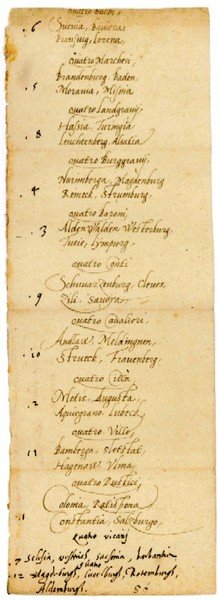 quatro Duchi
.6 Suevia, Baviera
Bransuig, Lorena
quatro Marchesi
Brandenburg. Baden
5 Moravia, Misnia
quatro Landgravij
8 Hassia, Turingia
Leuchtenberg, Alsatia
quatro Burggravij
Nurimberga, Magdenburg
4 Reineck, Strumburg
quatro Baroni
3 Alden Walden, Westerburg
Tusis, Lympurg.
quatro Conti
Schwarzenburg. Cleves
9 Zili. Savoya
quatro Cavalieri
Andlaw, Meldingen
.10 Strueck, Frauenberg
quatro Città
2 Metis, Augusta
Aquisgrano Lubeck
quatro Ville
11 Bamberga, Sletstat
Hagenow Vlma
quatro Rustici
Colonia, Ratispona
1 Constantia, Salzburgo
quatro vicarj
7
12 Magdeburgh, Rotemburgh,
Aldemburgh.